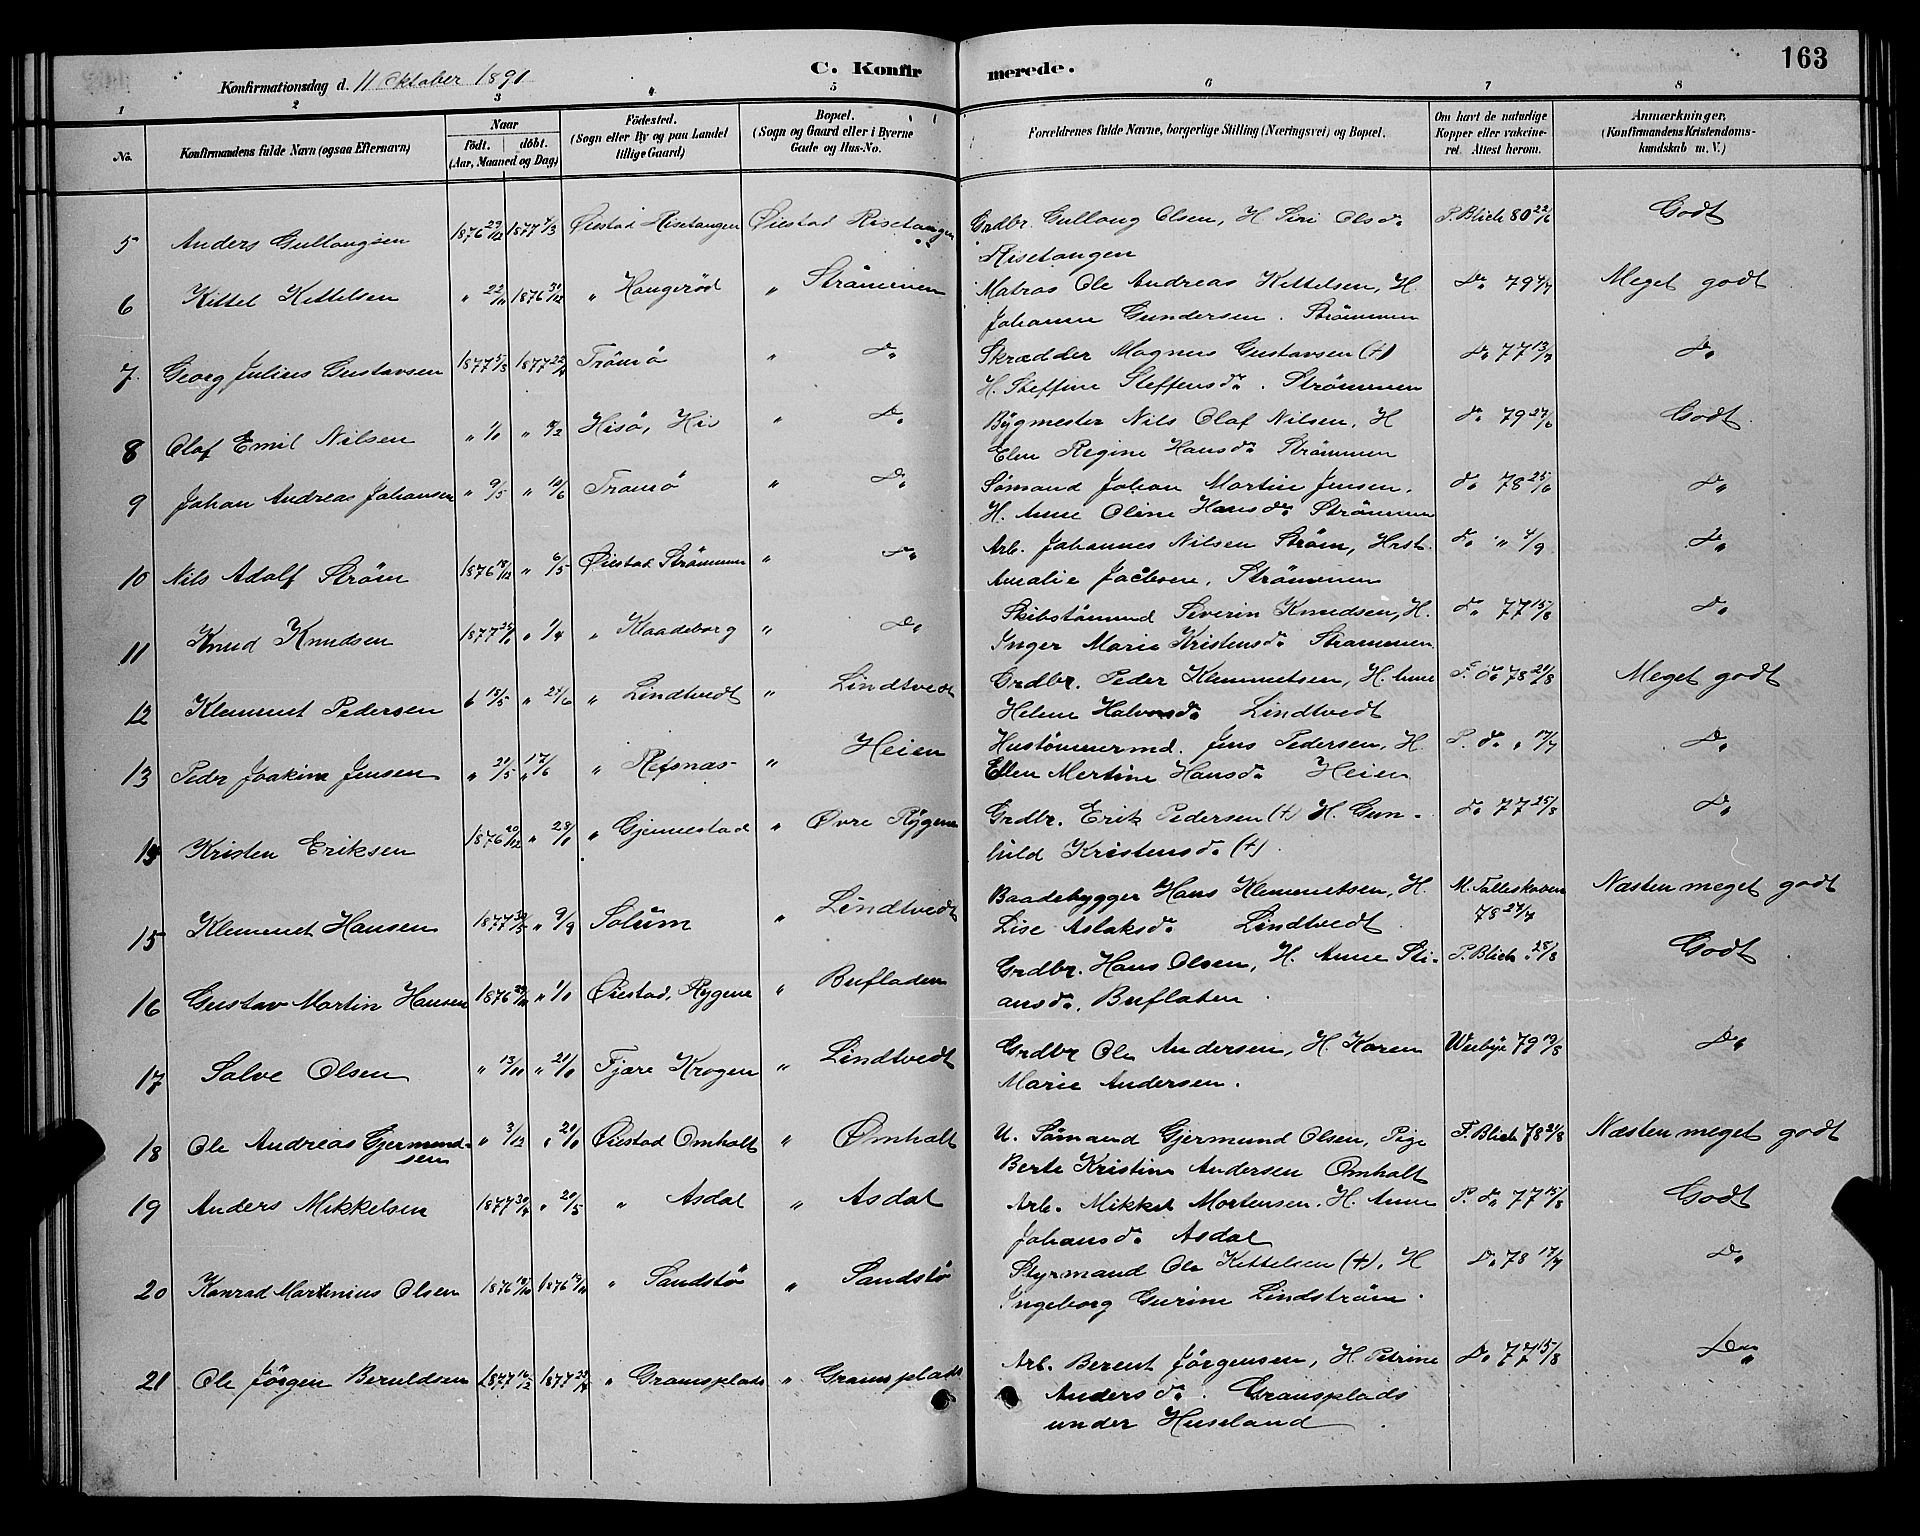 163
C. Konfirmerede.
Konfirmationsdag d. 11 Oktober 1891
1 2 3 4 5 6 7 8
No. Konfirmandens fulde Navn (ogsaa Efternavn) Naar født. døbt. (Aar, Maaned og Dag) Fødested. (Sogn eller By og paa Landet tillige Gaard) Bopæl. (Sogn og Gaard eller i Byerne Gade og Hus-No. Forældrenes fulde Navne, borgerlige Stilling (Næringsvei) og Bopæl. Om havt de naturlige Kopper eller vakcineret. Attest herom. Anmærkninger, (Konfirmandens Kristendomskundskab m. V.)
5 Anders Gullougsen 1876 29/12 1877 4/3 Øiestad Risetangen Øiestad Risetangen Grdbr. Gulloug Olsen, H. Siri Olsdr. P. Blich 80 22/6 Godt
Risetangen
6 Kittel Kittelsen " 22/11 1876 31/12 " Haugerød " Strømmen Matros Ole Andreas Kittelsen, H. Do 79 4/7 Meget godt
Johanne Gundersen. Strømmen
7. Georg Julius Gustavsen 1877 5/3 1877 22/4 Tromø " Do Skrædder Magnus Gustavsen (+) Do 77 13/7 Do
H. Steffine Steffensdr. Strømmen
8 Olaf Emil Nilsen " 1/1 " 18/2 Hisø, His " Do Bygmester Nils Olaf Nilsen, H Do 79 27/6 Godt
Elen Regine Hansdr. Strømmen
9 Johan Andreas Johansen " 9/5 " 10/6 Tromø " Do Sømand Johan Martin Jensen, Do 78 25/6 Do
H. Anne Oline Hansdr. Strømmen
10 Nils Adolf Strøm 1876 18/12 " 6/5 Øiestad Strømmen " Do Arb. Johannes Nilsen Strøm, Hrst. Do " 4/9 Do
Amalie Jacobsen, Strømmen
11 Knud Knudsen 1877 28/1 " 1/4 " Klaadeborg " Do Skibstømmd Severin Knudsen, H. Do 77 15/8 Do
Inger Marie Kristensdr. Strømmen
12 Klemmet Pedersen 6 18/5 " 24/6 " Lindtvedt " Lindtvedt Grdbr. Peder Klemmetsen, H. Anne F. Do 78 21/8 Meget godt
Helene Halvorsdr. Lindtvedt
13 Peder Joakim Jensen " 21/5 " 17/6 " Refsnæs " Heien Hustømmermd. Jens Pedersen, H. P. Do " 17/7 Do
Ellen Mertine Hansdr. Heien
14 Kristen Eriksen 1876 20/12 " 28/1 " Gjennestad " Øvre Rygene Grdbr. Erik Pedersen (+) H. Gun- Do 77 25/8 Do
hild Kristensdr. (+).
15 Klemmet Hansen 1877 30/5 " 9/9 Solum " Lindtvedt Baadebygger Hans Klemmetsen, H. M. Falleskoven Næsten meget godt
Lise Aslaksdr. Lindtvedt 78 27/7
16 Gustav Martin Hansen 1876 29/11 " 1/1 Øiestad, Rygene " Bufladen Grdbr. Hans Olsen, H. Anne Sti- P. Blich " 28/8 Godt
ansdr. Buflaten.
17 Salve Olsen " 13/11 " 21/1 Fjære Krogen " Lindtvedt Grdbr Ole Andersen, H. Karen Weibye 79 19/8 Do
Marie Andersen.
18 Ole Andreas Gjermund- " 3/12 " 21/1 Øiestad Omholt " Omholt U. Sømand Gjermund Olsen, Pige F. Blich 78 21/8 Næsten meget godt
sen Berte Kristine Andersen Omholt
19 Anders Mikkelsen 1877 30/4 " 20/5 " Asdal " Asdal Arb. Mikkel Mortensen. H. Anne P. Do 77 15/8 Godt
Johansdr. Asdal
20 Konrad Martinius Olsen 1876 14/10 1876 19/11 " Sandstø " Sandstø Styrmand Ole Kittelsen (+), H Do 78 17/7 Do
Ingeborg Gurine Lindstrøm.
21 Ole Jörgen Beruldsen 1877 16/2 1877 22/4 " Gramsplads " Gramsplads Arb. Berent Jörgensen, H. Petrine Do 77 15/8 Do
Andersdr. Gramsplads
under Huseland